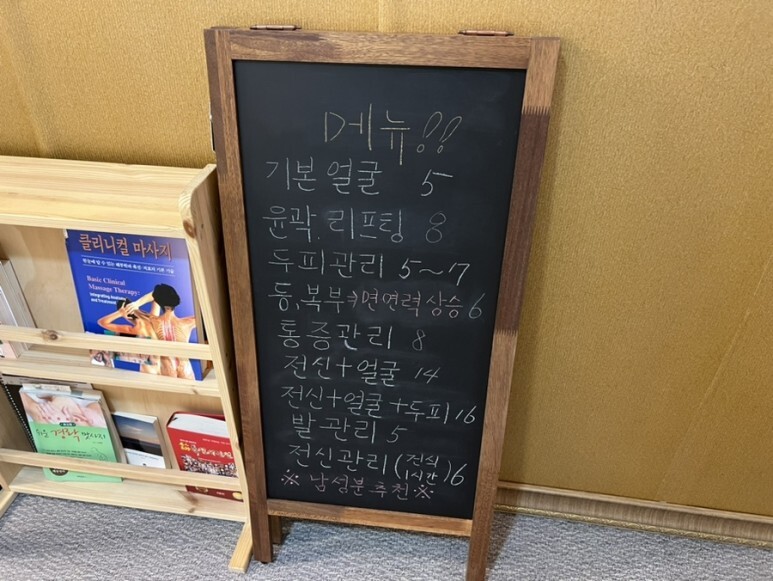 메뉴!!
기본 얼굴 5
윤곽. 리프팅 8
두피관리 5~7
등, 복부→면연력 상승 6
통증관리 8
전신+얼굴 14
전신+얼굴+두피 16
발관리 5
전신관리 (건식 1시간) 6
※ 남성분 추천 ※
클리니컬 마사지
Basic Clinical
Massage Therapy:
Integrating Anatomy
and Treatment
경락 마사지